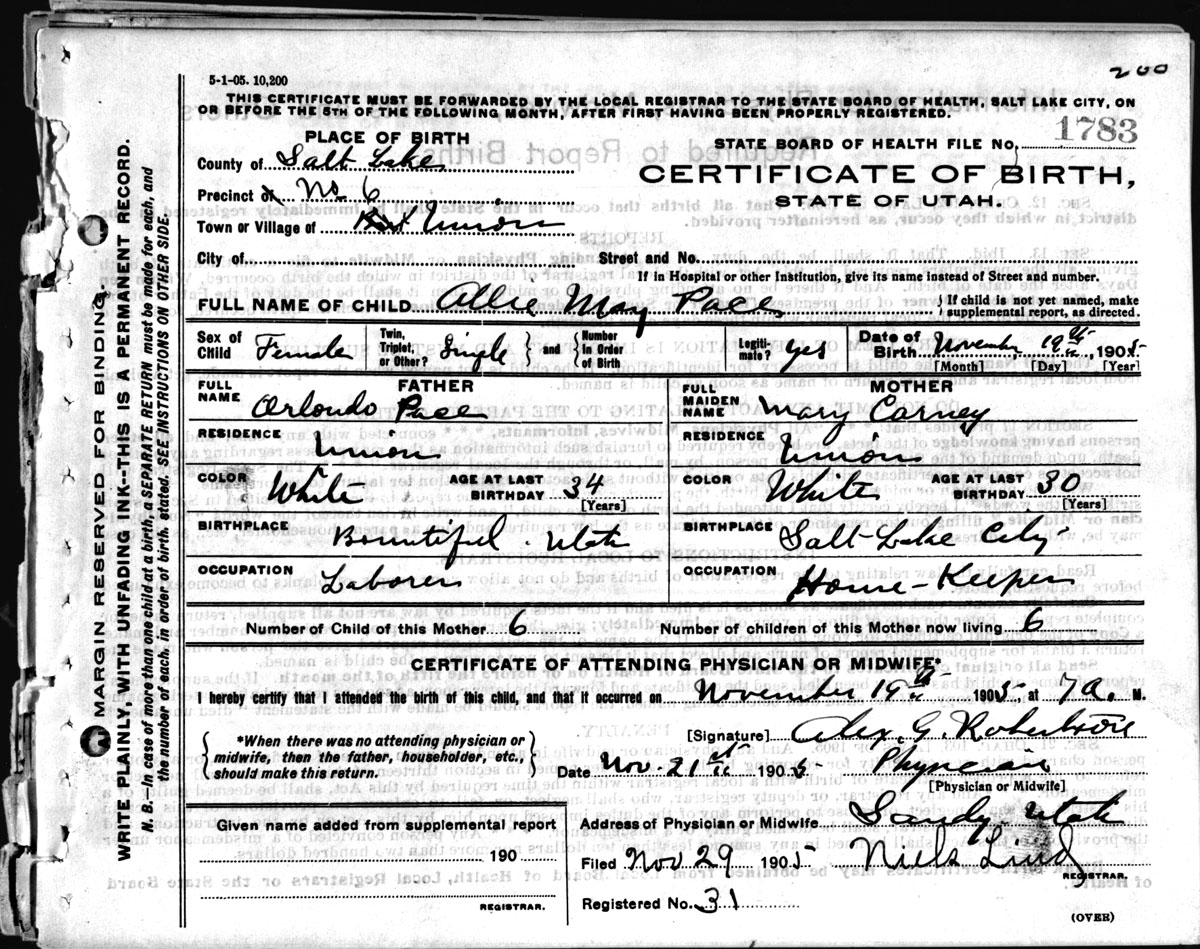 200
5-1-05. 10,200
THIS CERTIFICATE MUST BE FORWARDED BY THE LOCAL REGISTRAR TO THE STATE BOARD OF HEALTH, SALT LAKE CITY, ON
OR BEFORE THE 5TH OF THE FOLLOWING MONTH, AFTER FIRST HAVING BEEN PROPERLY REGISTERED.
PLACE OF BIRTH
STATE BOARD OF HEALTH FILE No. 1783
County of Salt Lake
CERTIFICATE OF BIRTH,
Precinct of No 6
STATE OF UTAH.
Town or Village of Union
City of Street and No.
If in Hospital or other Institution, give its name instead of Street and number.
FULL NAME OF CHILD Allie May Pace { If child is not yet named, make
supplemental report, as directed.
Sex of Child Female Twin, Triplet, or Other? Single } and { Number in Order of Birth Legitimate? yes Date of Birth November 19th 1905
[Month] [Day] [Year]
FATHER
FULL NAME Orlondo Pace
RESIDENCE Union
COLOR White AGE AT LAST BIRTHDAY 34
[Years]
BIRTHPLACE Bountiful - Utah
OCCUPATION Laborer
MOTHER
FULL MAIDEN NAME Mary Carney
RESIDENCE Union
COLOR White AGE AT LAST BIRTHDAY 30
[Years]
BIRTHPLACE Salt Lake City
OCCUPATION House-Keeper
Number of Child of this Mother 6 Number of children of this Mother now living 6
CERTIFICATE OF ATTENDING PHYSICIAN OR MIDWIFE*
I hereby certify that I attended the birth of this child, and that it occurred on November 19th 1905 at 7 a. M.
{ *When there was no attending physician or
midwife, then the father, householder, etc.,
should make this return. }
[Signature] Alex. G. Robertson
Date Nov. 21st 1905 Physician
[Physician or Midwife]
Given name added from supplemental report
190
REGISTRAR.
Address of Physician or Midwife Sandy Utah
Filed Nov 29 1905 Niels Lind
REGISTRAR.
Registered No. 31
(OVER)
MARGIN RESERVED FOR BINDING
WRITE PLAINLY, WITH UNFADING INK--THIS IS A PERMANENT RECORD.
N. B.--In case of more than one child at a birth, a SEPARATE RETURN must be made for each, and
the number of each, in order of birth, stated. SEE INSTRUCTIONS ON OTHER SIDE.